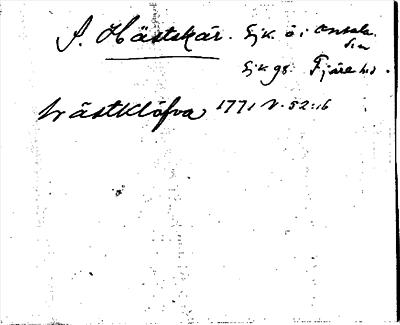 S. Hästskär. Ejk ö i Onsala
sn
Ejk gs. Fjäre hd.
Hästklöfva 1771 V. 52:16